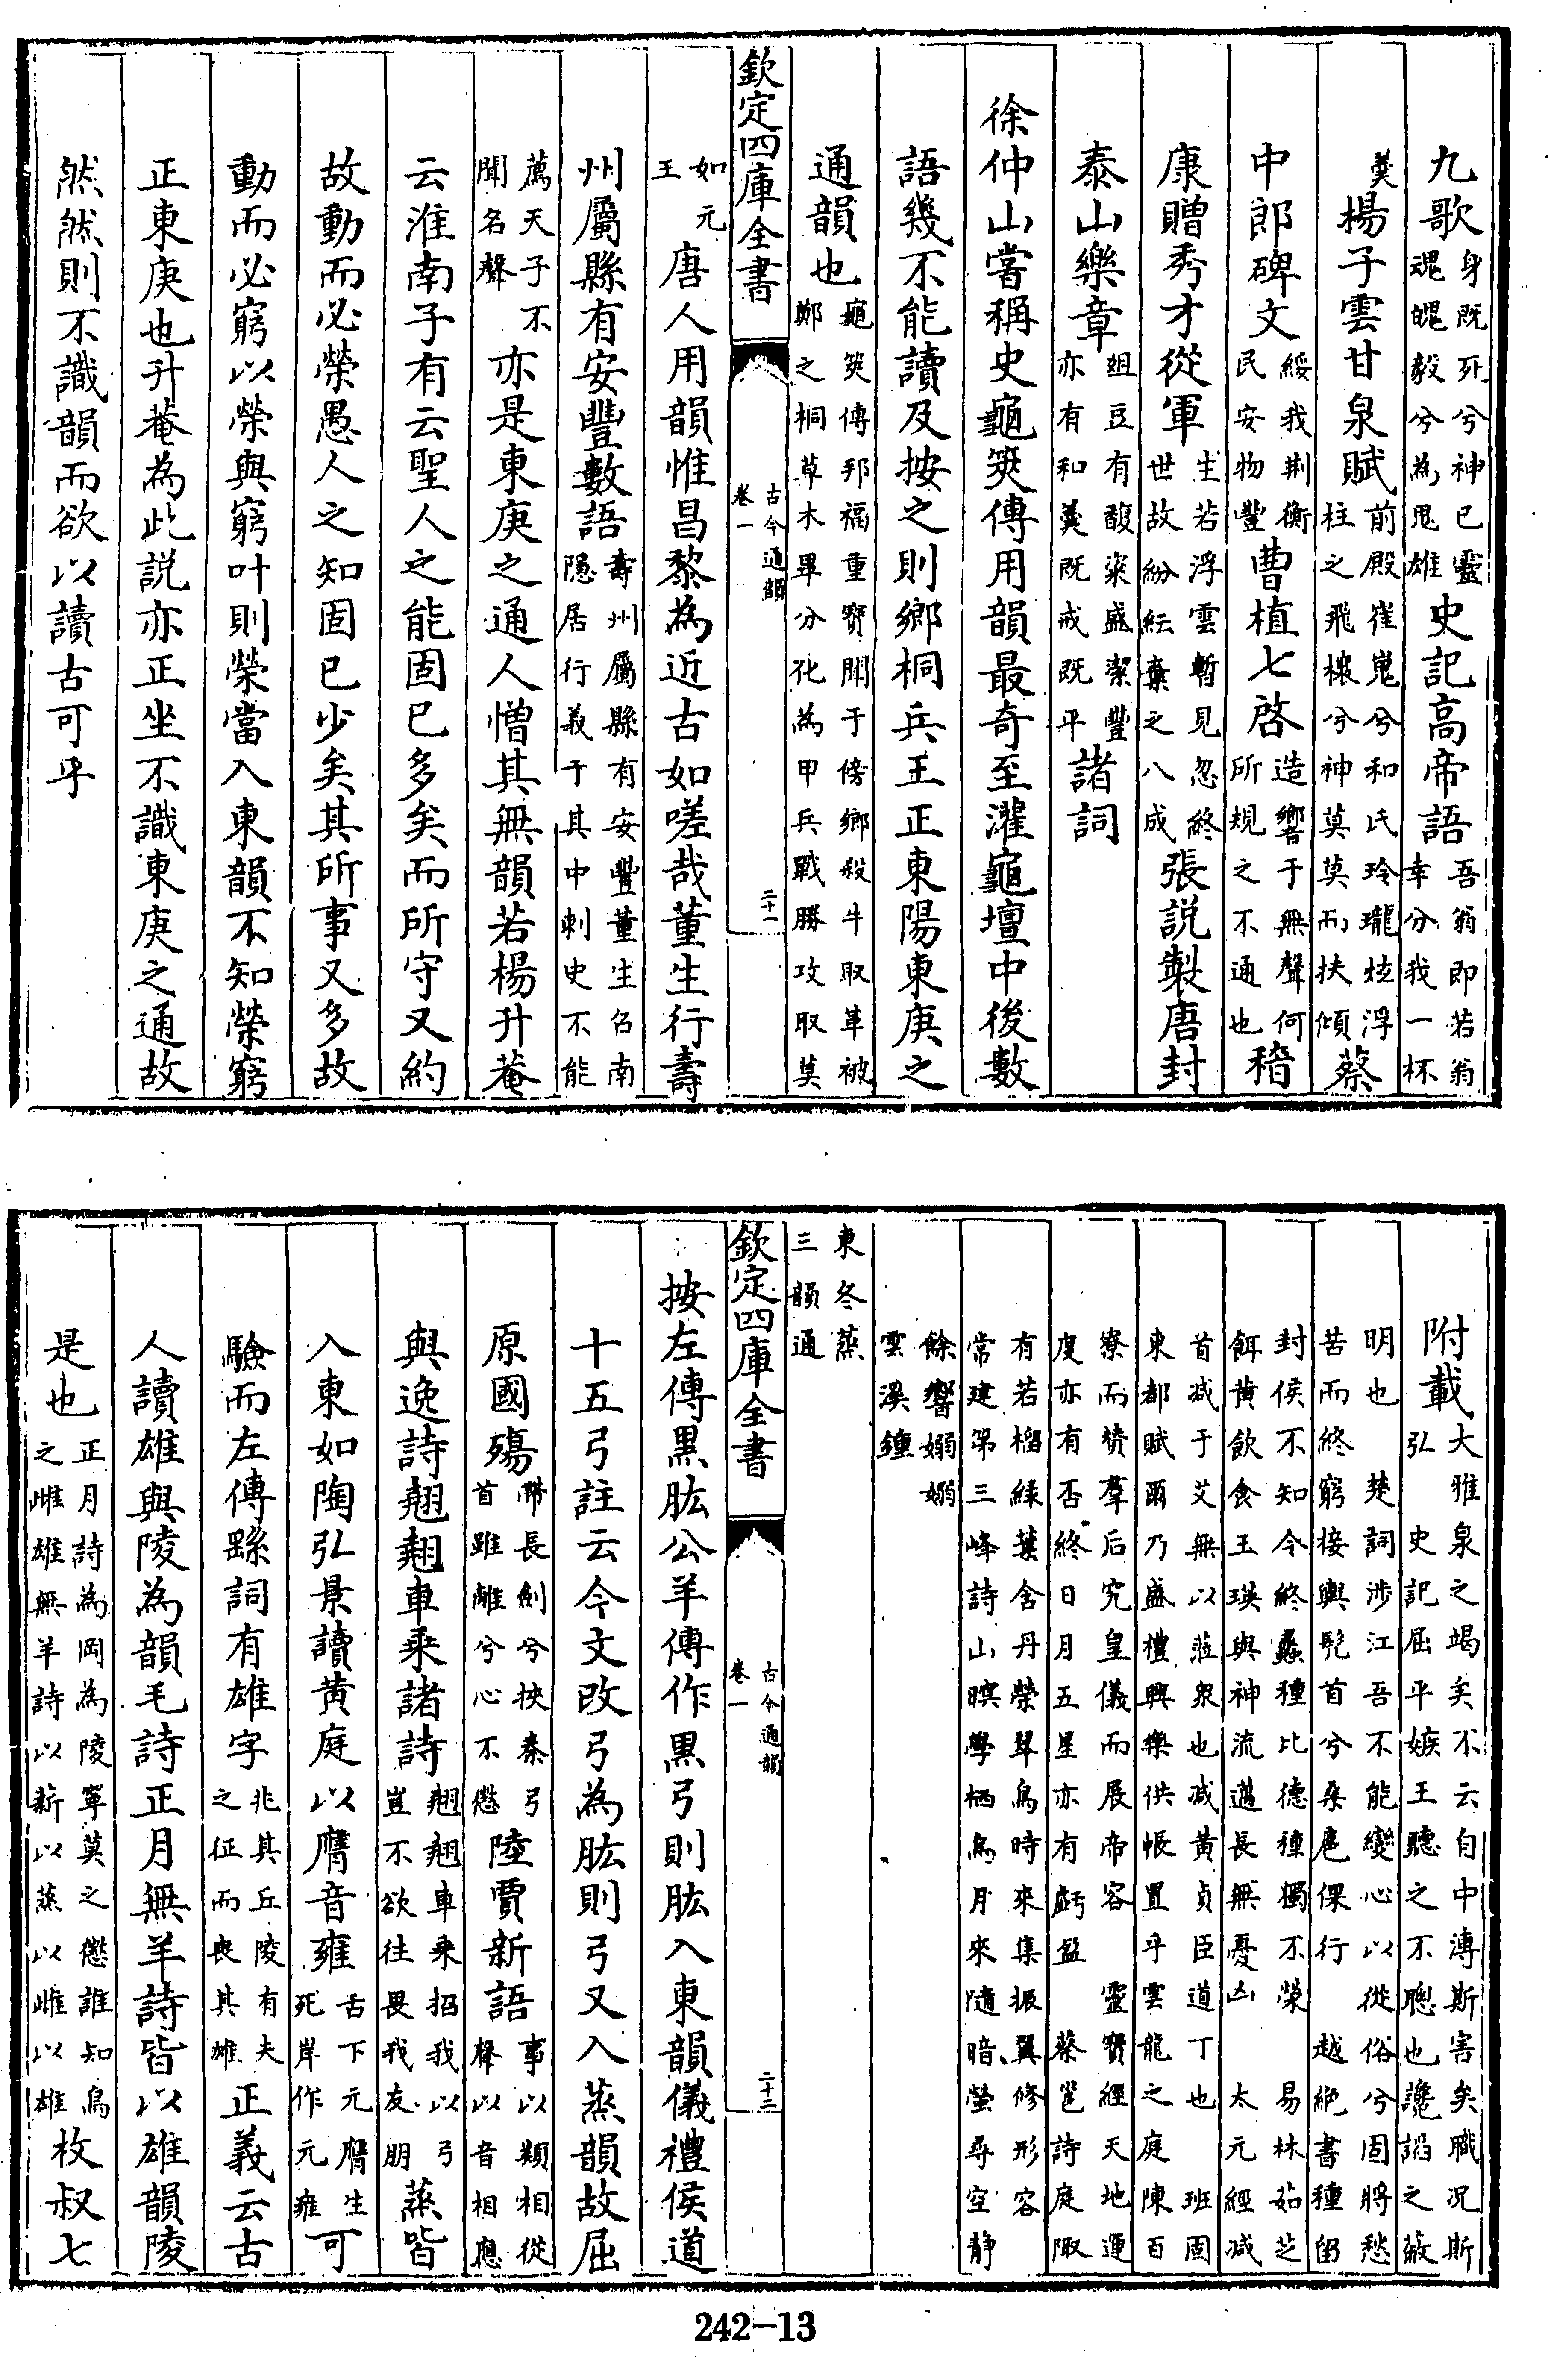 九歌身既死兮神已靈魂魄毅兮為鬼雄史記高帝語吾翁即若翁幸分我一杯
羹楊子雲甘泉賦前殿崔嵬兮和氏玲瓏炫浮柱之飛榱兮神莫莫而扶傾蔡
中郎碑文綏我荆衡民安物豐曹植七啓造響于無聲何所規之不通也稽
康贈秀才從軍生若浮雲暫見忽終世故紛紜棄之八成張説製唐封
泰山樂章俎豆有馥粢盛潔豐亦有和羹既戒既平諸詞
徐仲山嘗稱史龜筴傳用韻最奇至灌龜壇中後數
語幾不能讀及按之則鄉桐兵王正東陽東庚之
通韻也龜筴傳邦福重寶聞于傍鄉殺牛取革被鄭之桐草木畢分化為甲兵戰勝攻取莫
欽定四庫全書
古今通韻
卷一
二十一
如元王唐人用韻惟昌黎為近古如嗟哉董生行壽
州屬縣有安豐數語壽州屬縣有安豐董生召南隱居行義于其中刺史不能
薦天子不聞名聲亦是東庚之通人憎其無韻若楊升菴
云淮南子有云聖人之能固已多矣而所守又約
故動而必榮愚人之知固已少矣其所事又多故
動而必窮以榮與窮叶則榮當入東韻不知榮窮
正東庚也升菴為此説亦正坐不識東庚之通故
然然則不識韻而欲以讀古可乎
附載大雅泉之竭矣不云自中溥斯害矣職况斯弘 史記屈平嫉王聽之不聰也讒諂之蔽
明也 楚詞涉江吾不能變心以從俗兮固將愁苦而終窮接輿髡首兮桑扈倮行 越絶書種留
封侯不知令終蠡種比德種獨不榮 易林茹芝餌黄飲食玉瑛與神流通長無憂凶 太元經減
首減于艾無以涖衆也減黄貞臣道丁也 班固東都賦爾乃盛禮興樂供帳置乎雲龍之庭陳百
寮而贊羣后究皇儀而展帝容 靈寶經天地運度亦有否終日月五星亦有虧盈 蔡邕詩庭陬
有若榴綠葉含丹榮翠鳥時來集振翼修形容 常建第三峰詩山暝學栖鳥月來隨暗螢尋空静
餘響嫋嫋雲溪鐘
東冬蒸三韻通
欽定四庫全書
古今通韻
卷一
二十二
按左傳黒肱公羊傳作黒弓則肱入東韻儀禮侯道
十五弓註云今文改弓為肱則弓又入蒸韻故屈
原國殤帶長劍兮挾秦弓首雖離兮心不懲陸賈新語事以類相從聲以音相應
與逸詩翹翹車乘諸詩翹翹車乘招我以弓豈不欲往畏我友朋蒸皆
入東如陶弘景讀黄庭以膺音雍舌下元膺生死岸作元雍可
驗而左傳繇詞有雄字兆其丘陵有夫之征而喪其雄正義云古
人讀雄與陵為韻毛詩正月無羊詩皆以雄韻陵
是也正月詩為岡為陵寧莫之懲誰知烏之雌雄無羊詩以薪以蒸以雌以雄枚叔七
242-13